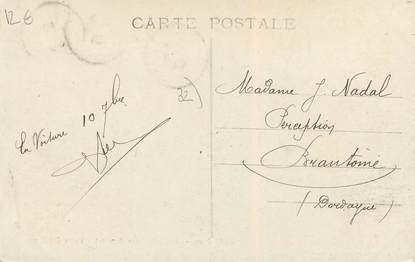 12 €
CARTE POSTALE
32
La Voiture 10 7bre
Madame J. Nadal
Perception
Brantôme
(Dordogne)